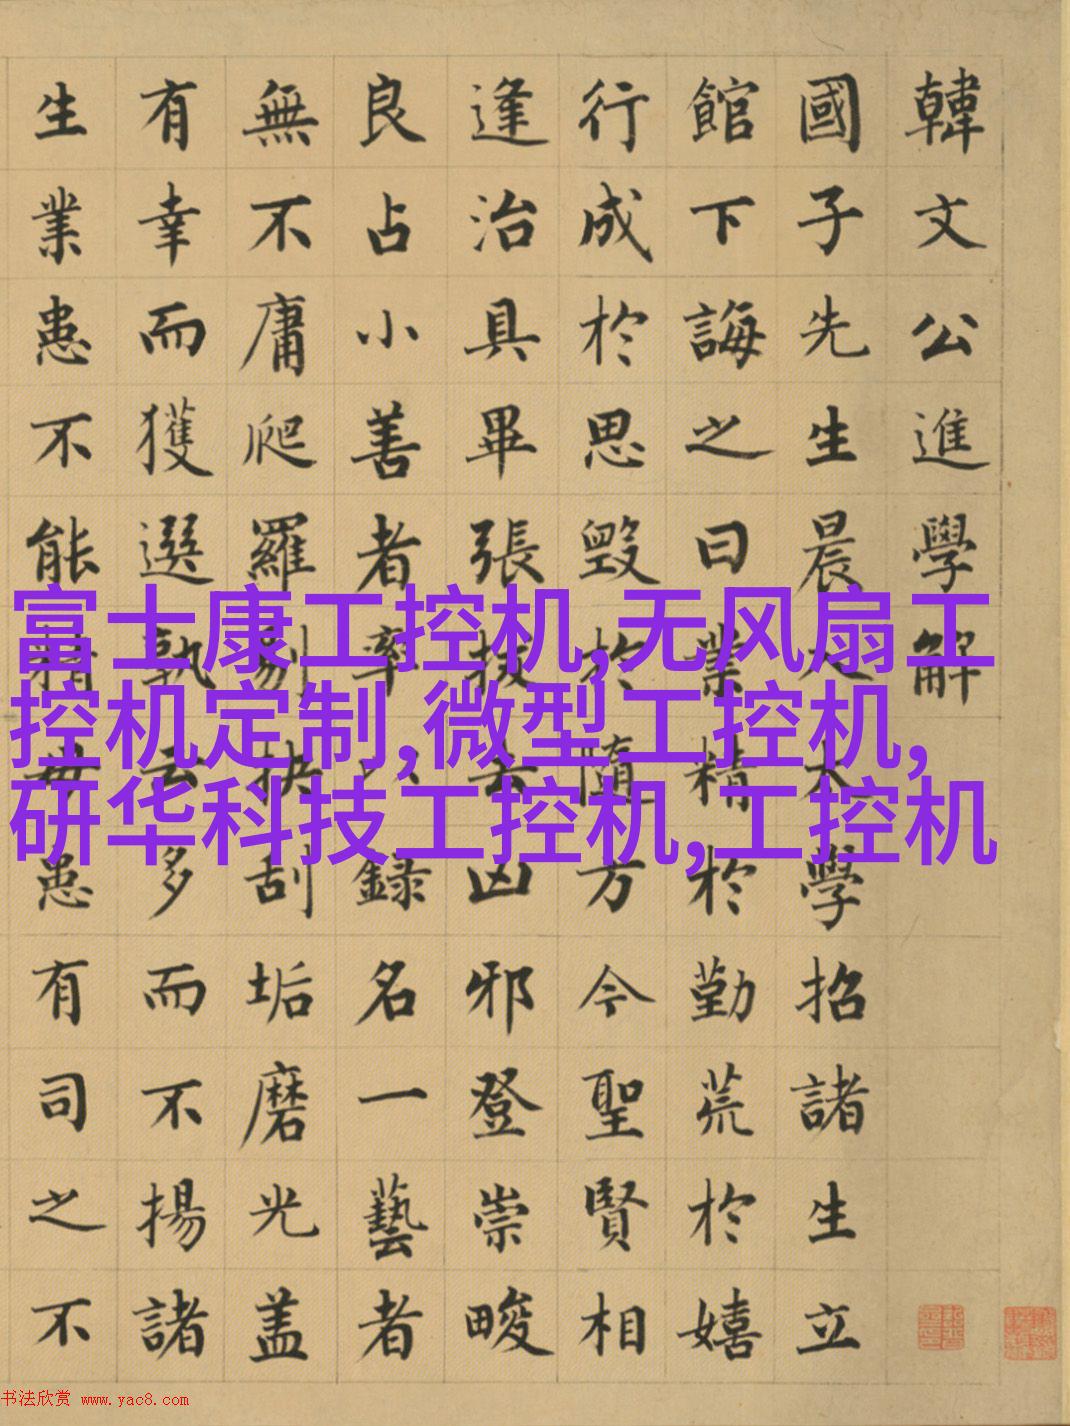 韓文公進學解
國子先生晨入太學招諸生立
館下誨之曰業精於勤荒於嬉
行成於思毀於隨方今聖賢相
逢治具畢張拔去凶邪登崇畯
良占小善者率以録名一藝者
無不庸爬羅剔抉刮垢磨光盖
有幸而獲選孰云多而不揚諸
生業患不能精毋患有司之不
富士康工控机,无风扇工
控机定制,微型工控机,
研华科技工控机,工控机
书法欣赏 www.yac8.com